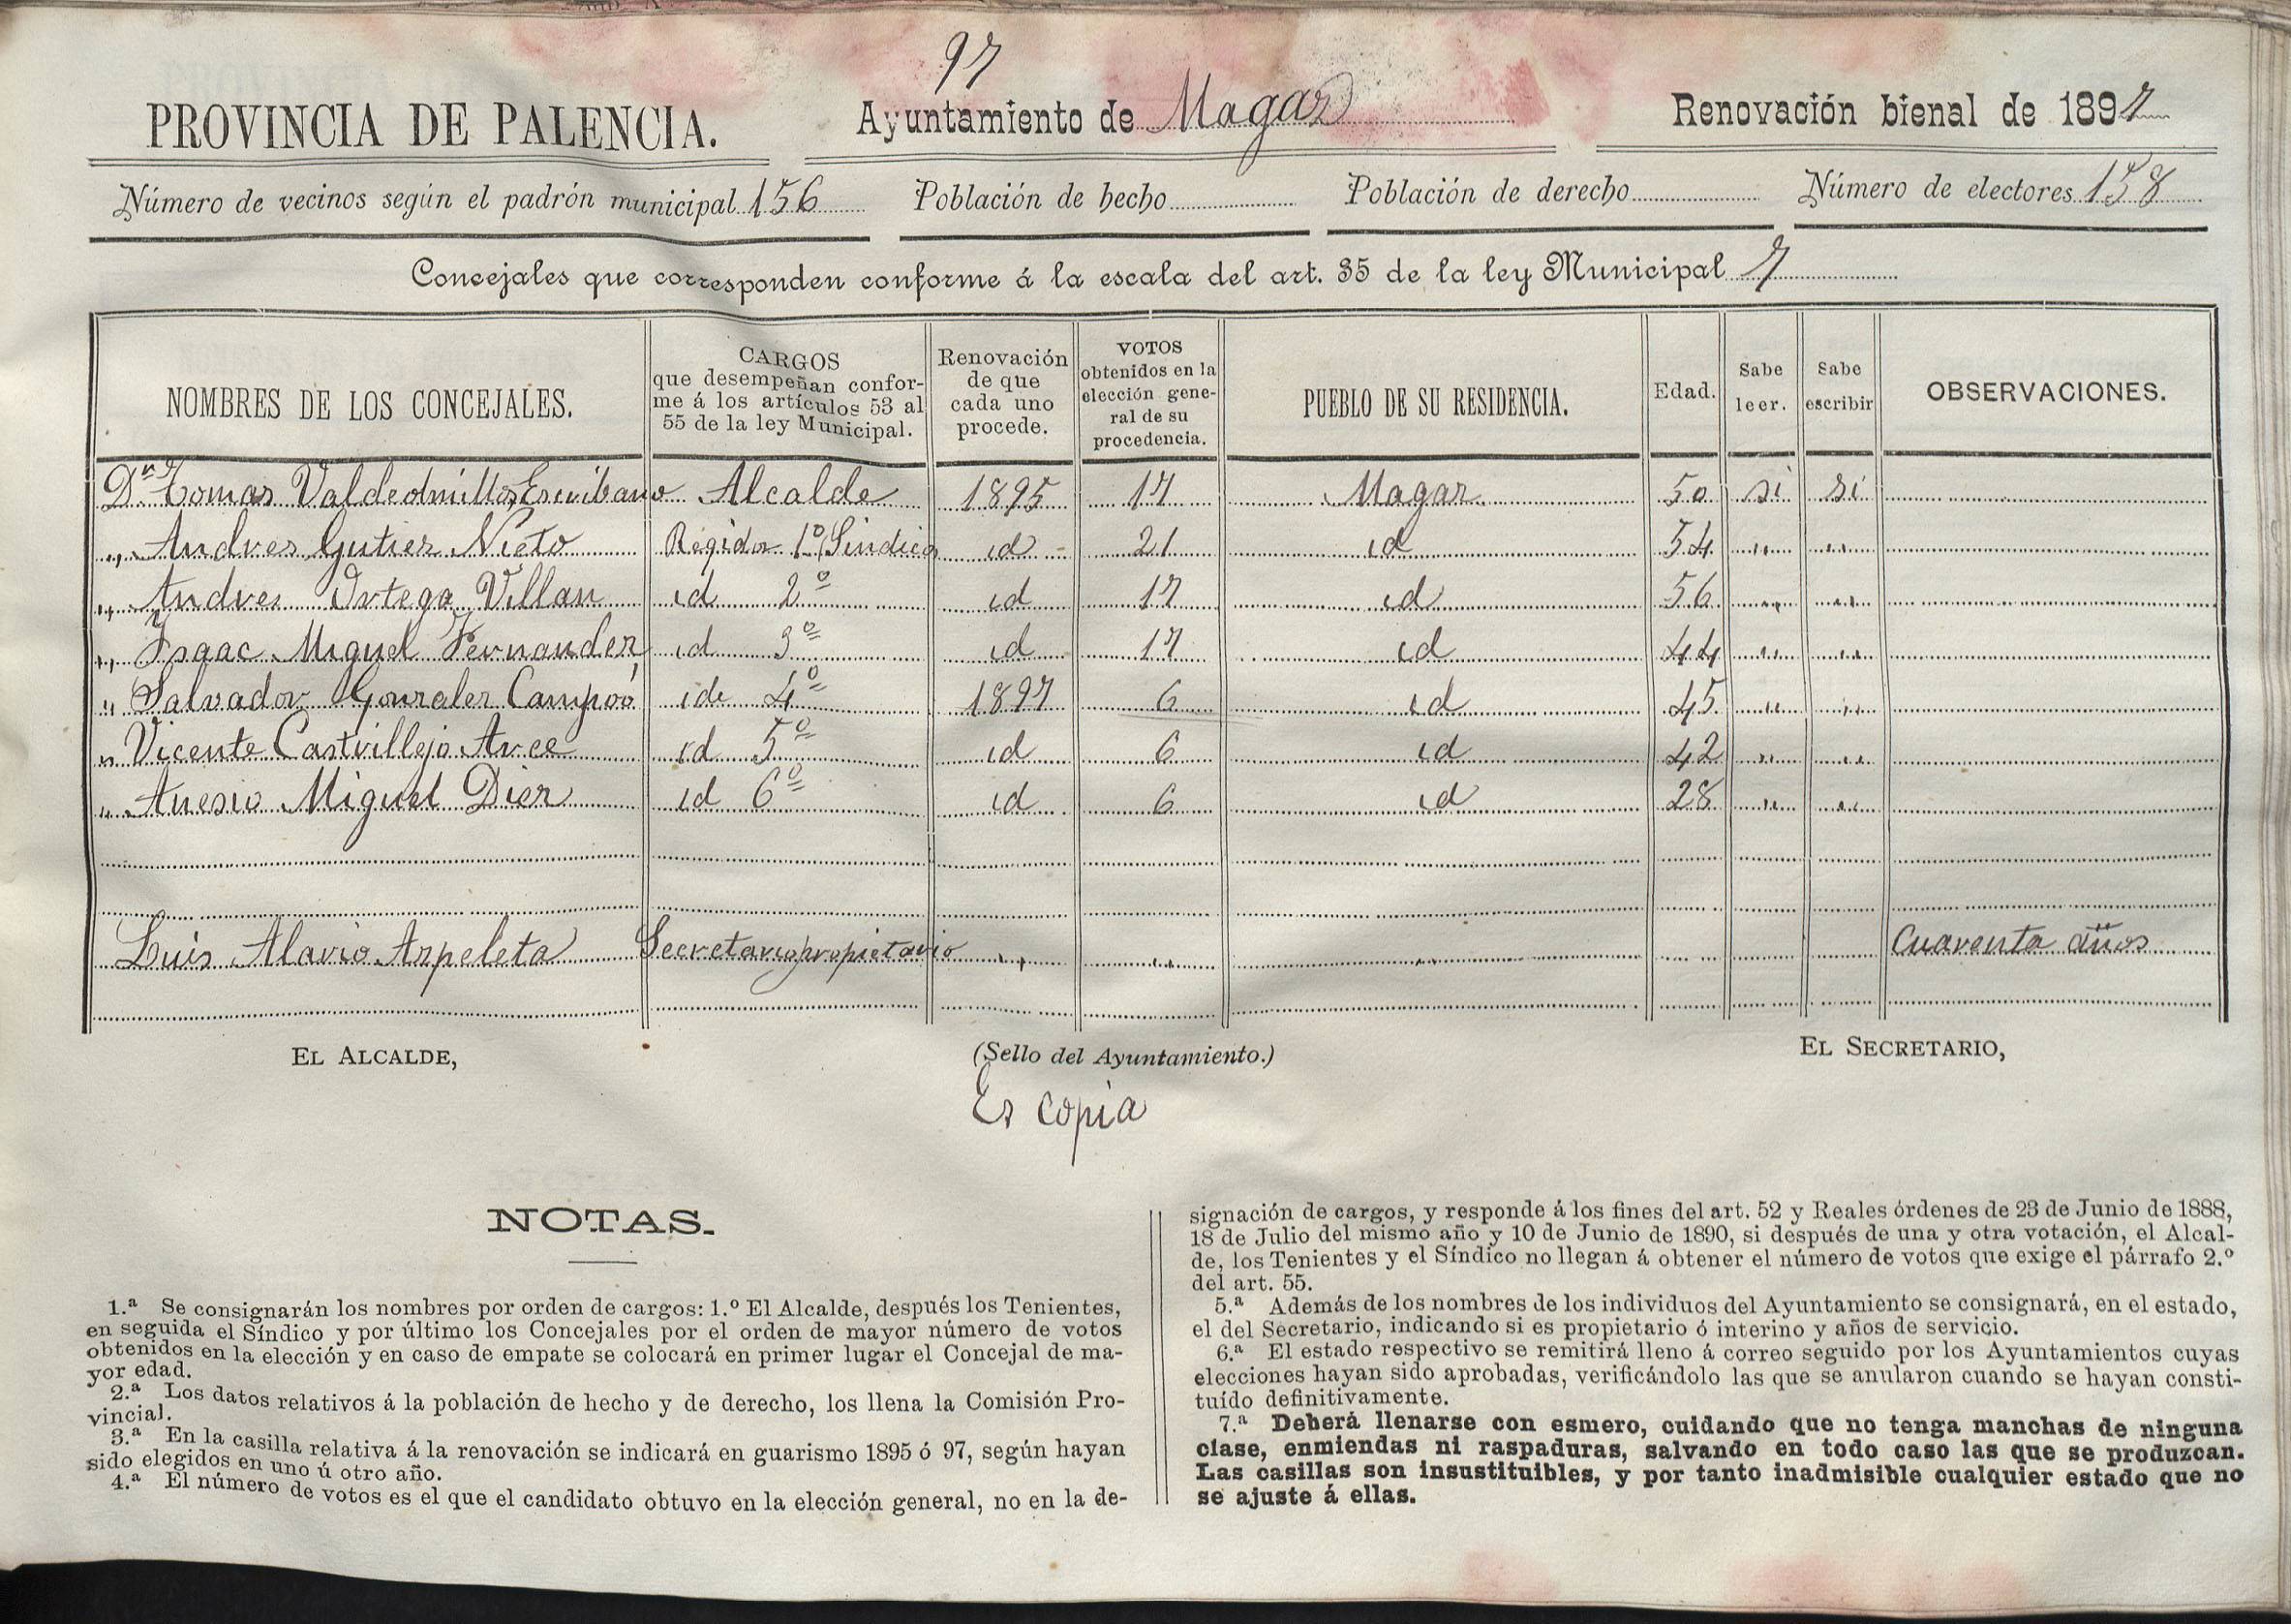 97
PROVINCIA DE PALENCIA. Ayuntamiento de Magaz Renovación bienal de 1897
Número de vecinos según el padrón municipal 156 Población de hecho Población de derecho Número de electores 158
Concejales que corresponden conforme á la escala del art. 35 de la ley Municipal 7
NOMBRES DE LOS CONCEJALES. CARGOS que desempeñan conforme á los artículos 53 al 55 de la ley Municipal. Renovación de que cada uno procede. VOTOS obtenidos en la elección general de su procedencia. PUEBLO DE SU RESIDENCIA. Edad. Sabe leer. Sabe escribir OBSERVACIONES.
Dn Tomas Valdeolmillos Escribano Alcalde 1895 17 Magaz 50 si si
„ Andres Gutiez Nieto Regidor 1º Sindico id 21 id 54 „ „
„ Andres Ortega Villan id 2º id 17 id 56 „ „
„ Isaac Miguel Fernandez id 3º id 17 id 44 „ „
„ Salvador Gonzalez Campóo id 4º 1897 6 id 45 „ „
„ Vicente Castrillejo Arce id 5º id 6 id 42 „ „
„ Anesio Miguel Diez id 6º id 6 id 28 „ „
Luis Alavio Azpeleta Secretario propietario „ „ „ Cuarenta años
EL ALCALDE, (Sello del Ayuntamiento.) EL SECRETARIO,
Es copia
NOTAS.
1.ª Se consignarán los nombres por orden de cargos: 1.º El Alcalde, después los Tenientes,
en seguida el Síndico y por último los Concejales por el orden de mayor número de votos
obtenidos en la elección y en caso de empate se colocará en primer lugar el Concejal de ma-
yor edad.
2.ª Los datos relativos á la población de hecho y de derecho, los llena la Comisión Pro-
vincial.
3.ª En la casilla relativa á la renovación se indicará en guarismo 1895 ó 97, según hayan
sido elegidos en uno ú otro año.
4.ª El número de votos es el que el candidato obtuvo en la elección general, no en la de-
signación de cargos, y responde á los fines del art. 52 y Reales órdenes de 23 de Junio de 1888,
18 de Julio del mismo año y 10 de Junio de 1890, si después de una y otra votación, el Alcal-
de, los Tenientes y el Síndico no llegan á obtener el número de votos que exige el párrafo 2.º
del art. 55.
5.ª Además de los nombres de los individuos del Ayuntamiento se consignará, en el estado,
el del Secretario, indicando si es propietario ó interino y años de servicio.
6.ª El estado respectivo se remitirá lleno á correo seguido por los Ayuntamientos cuyas
elecciones hayan sido aprobadas, verificándolo las que se anularon cuando se hayan consti-
tuído definitivamente.
7.ª Deberá llenarse con esmero, cuidando que no tenga manchas de ninguna
clase, enmiendas ni raspaduras, salvando en todo caso las que se produzcan.
Las casillas son insustituibles, y por tanto inadmisible cualquier estado que no
se ajuste á ellas.